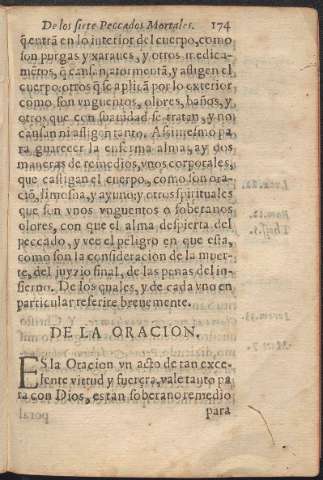 De los siete Peccados Mortales. 174
q̃ entrã en lo interior del cuerpo, como
son purgas y xaraues, y otros medica-
mētos, q̃ cansan, atormentã, y afligen el
cuerpo: otros q̃ se aplicã por lo exterior,
como son vnguentos, olores, baños, y
otros que con suauidad se tratan, y no
cansan ni afligen tanto. Assimesmo pa
ra guarecer la enferma alma, ay dos
maneras de remedios, vnos corporales,
que castigan el cuerpo, como son ora-
ciō, limosna, y ayuno: y otros spirituales
que son vnos vnguentos o soberanos
olores, con que el alma despierta del
peccado, y vee el peligro en que esta,
como son la consideracion de la muer-
te, del juyzio final, de las penas del in-
fierno. De los quales, y de cada vno en
particular referire breuemente.
DE LA ORACION.
ES la Oracion vn acto de tan exce-
lente virtud y fuerça, vale tanto pa
ra con Dios, es tan soberano remedio
para